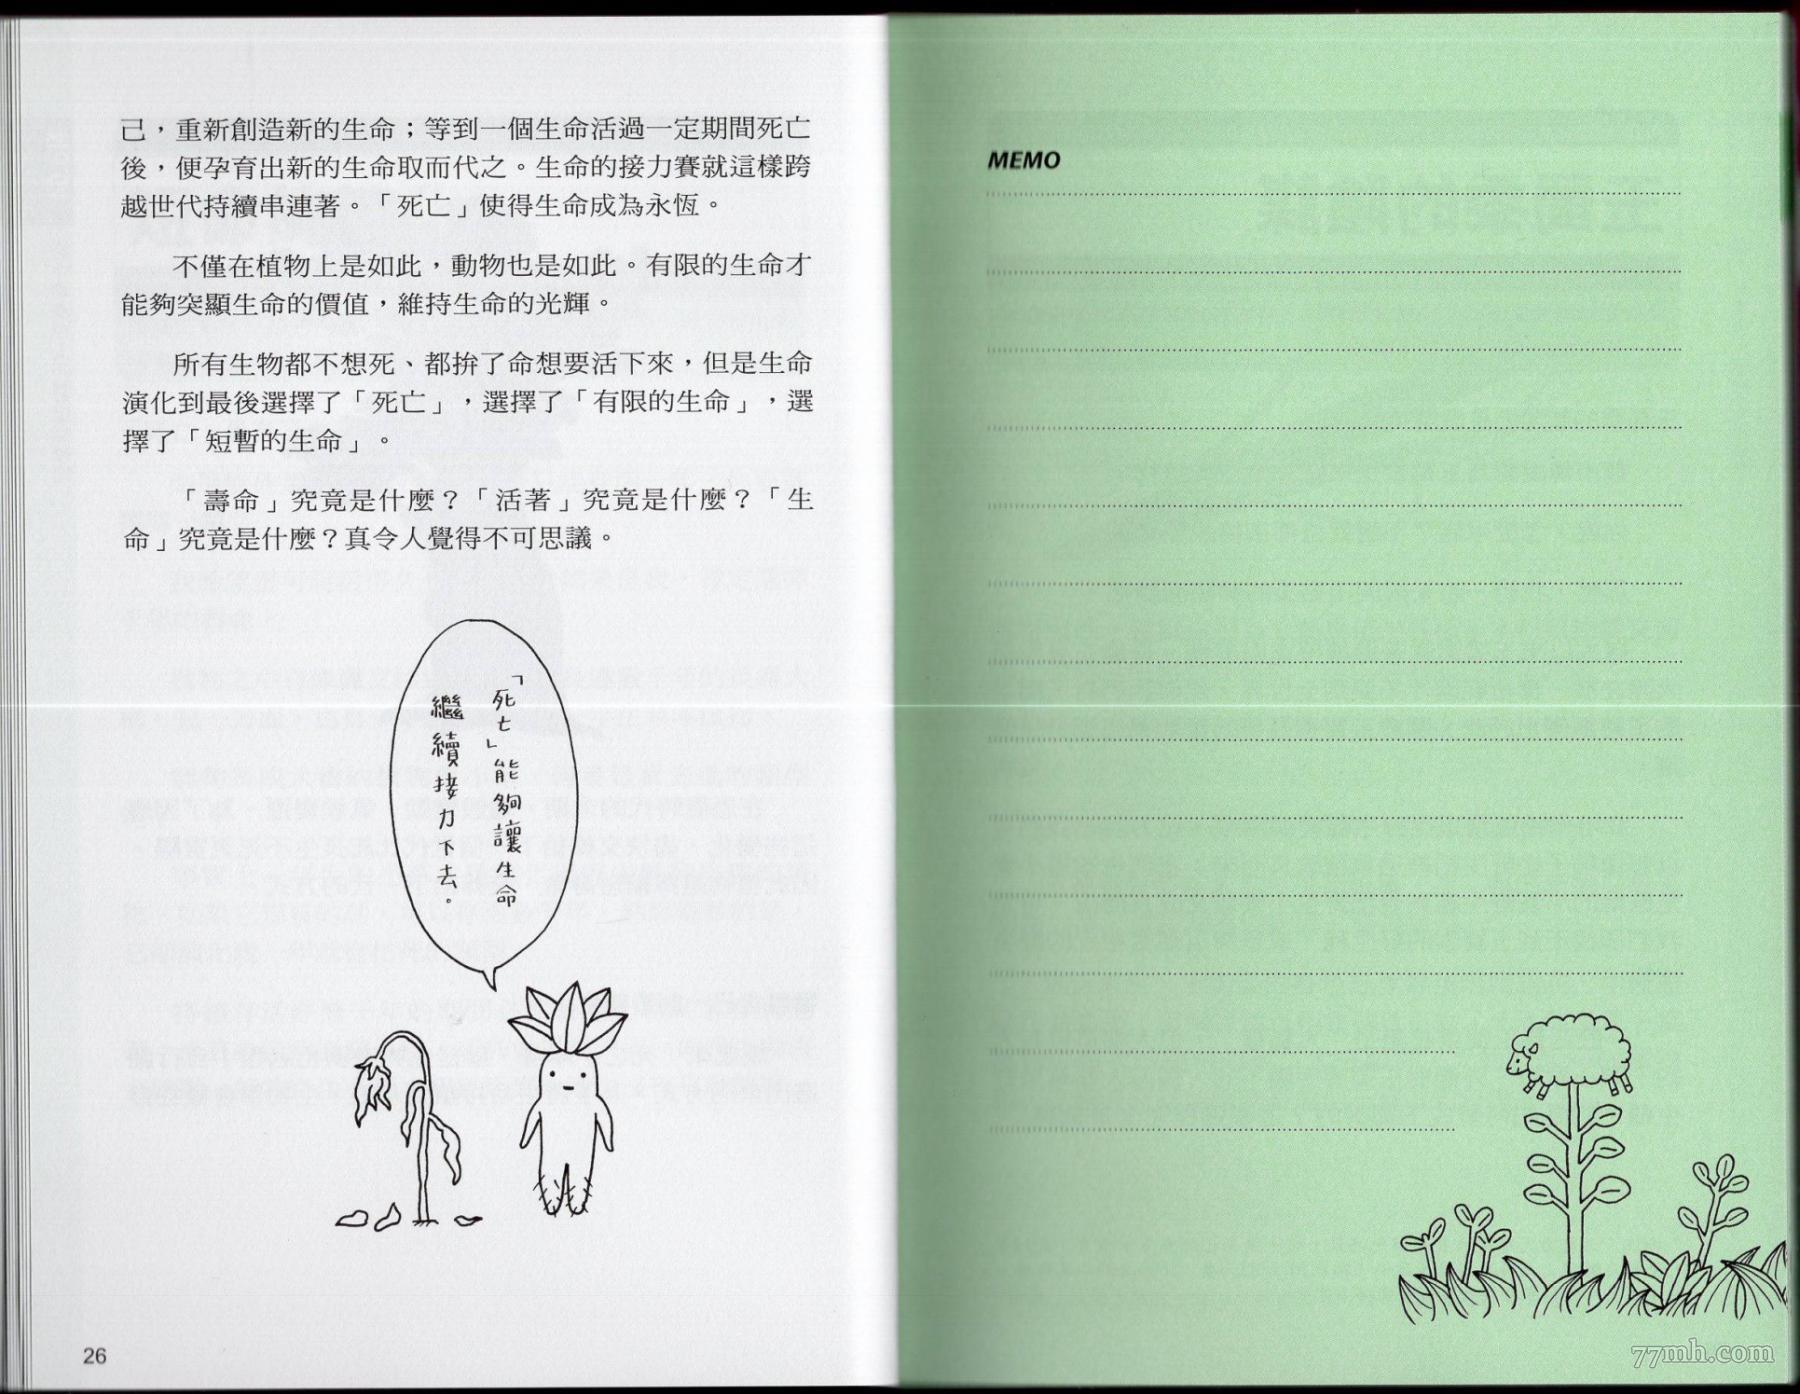 己，重新創造新的生命；等到一個生命活過一定期間死亡
後，便孕育出新的生命取而代之。生命的接力賽就這樣跨
越世代持續串連著。「死亡」使得生命成為永恆。
不僅在植物上是如此，動物也是如此。有限的生命才
能夠突顯生命的價值，維持生命的光輝。
所有生物都不想死、都拚了命想要活下來，但是生命
演化到最後選擇了「死亡」，選擇了「有限的生命」，選
擇了「短暫的生命」。
「壽命」究竟是什麼？「活著」究竟是什麼？「生
命」究竟是什麼？真令人覺得不可思議。
「死亡」能夠讓生命
繼續接力下去。
26
MEMO
77mh.com